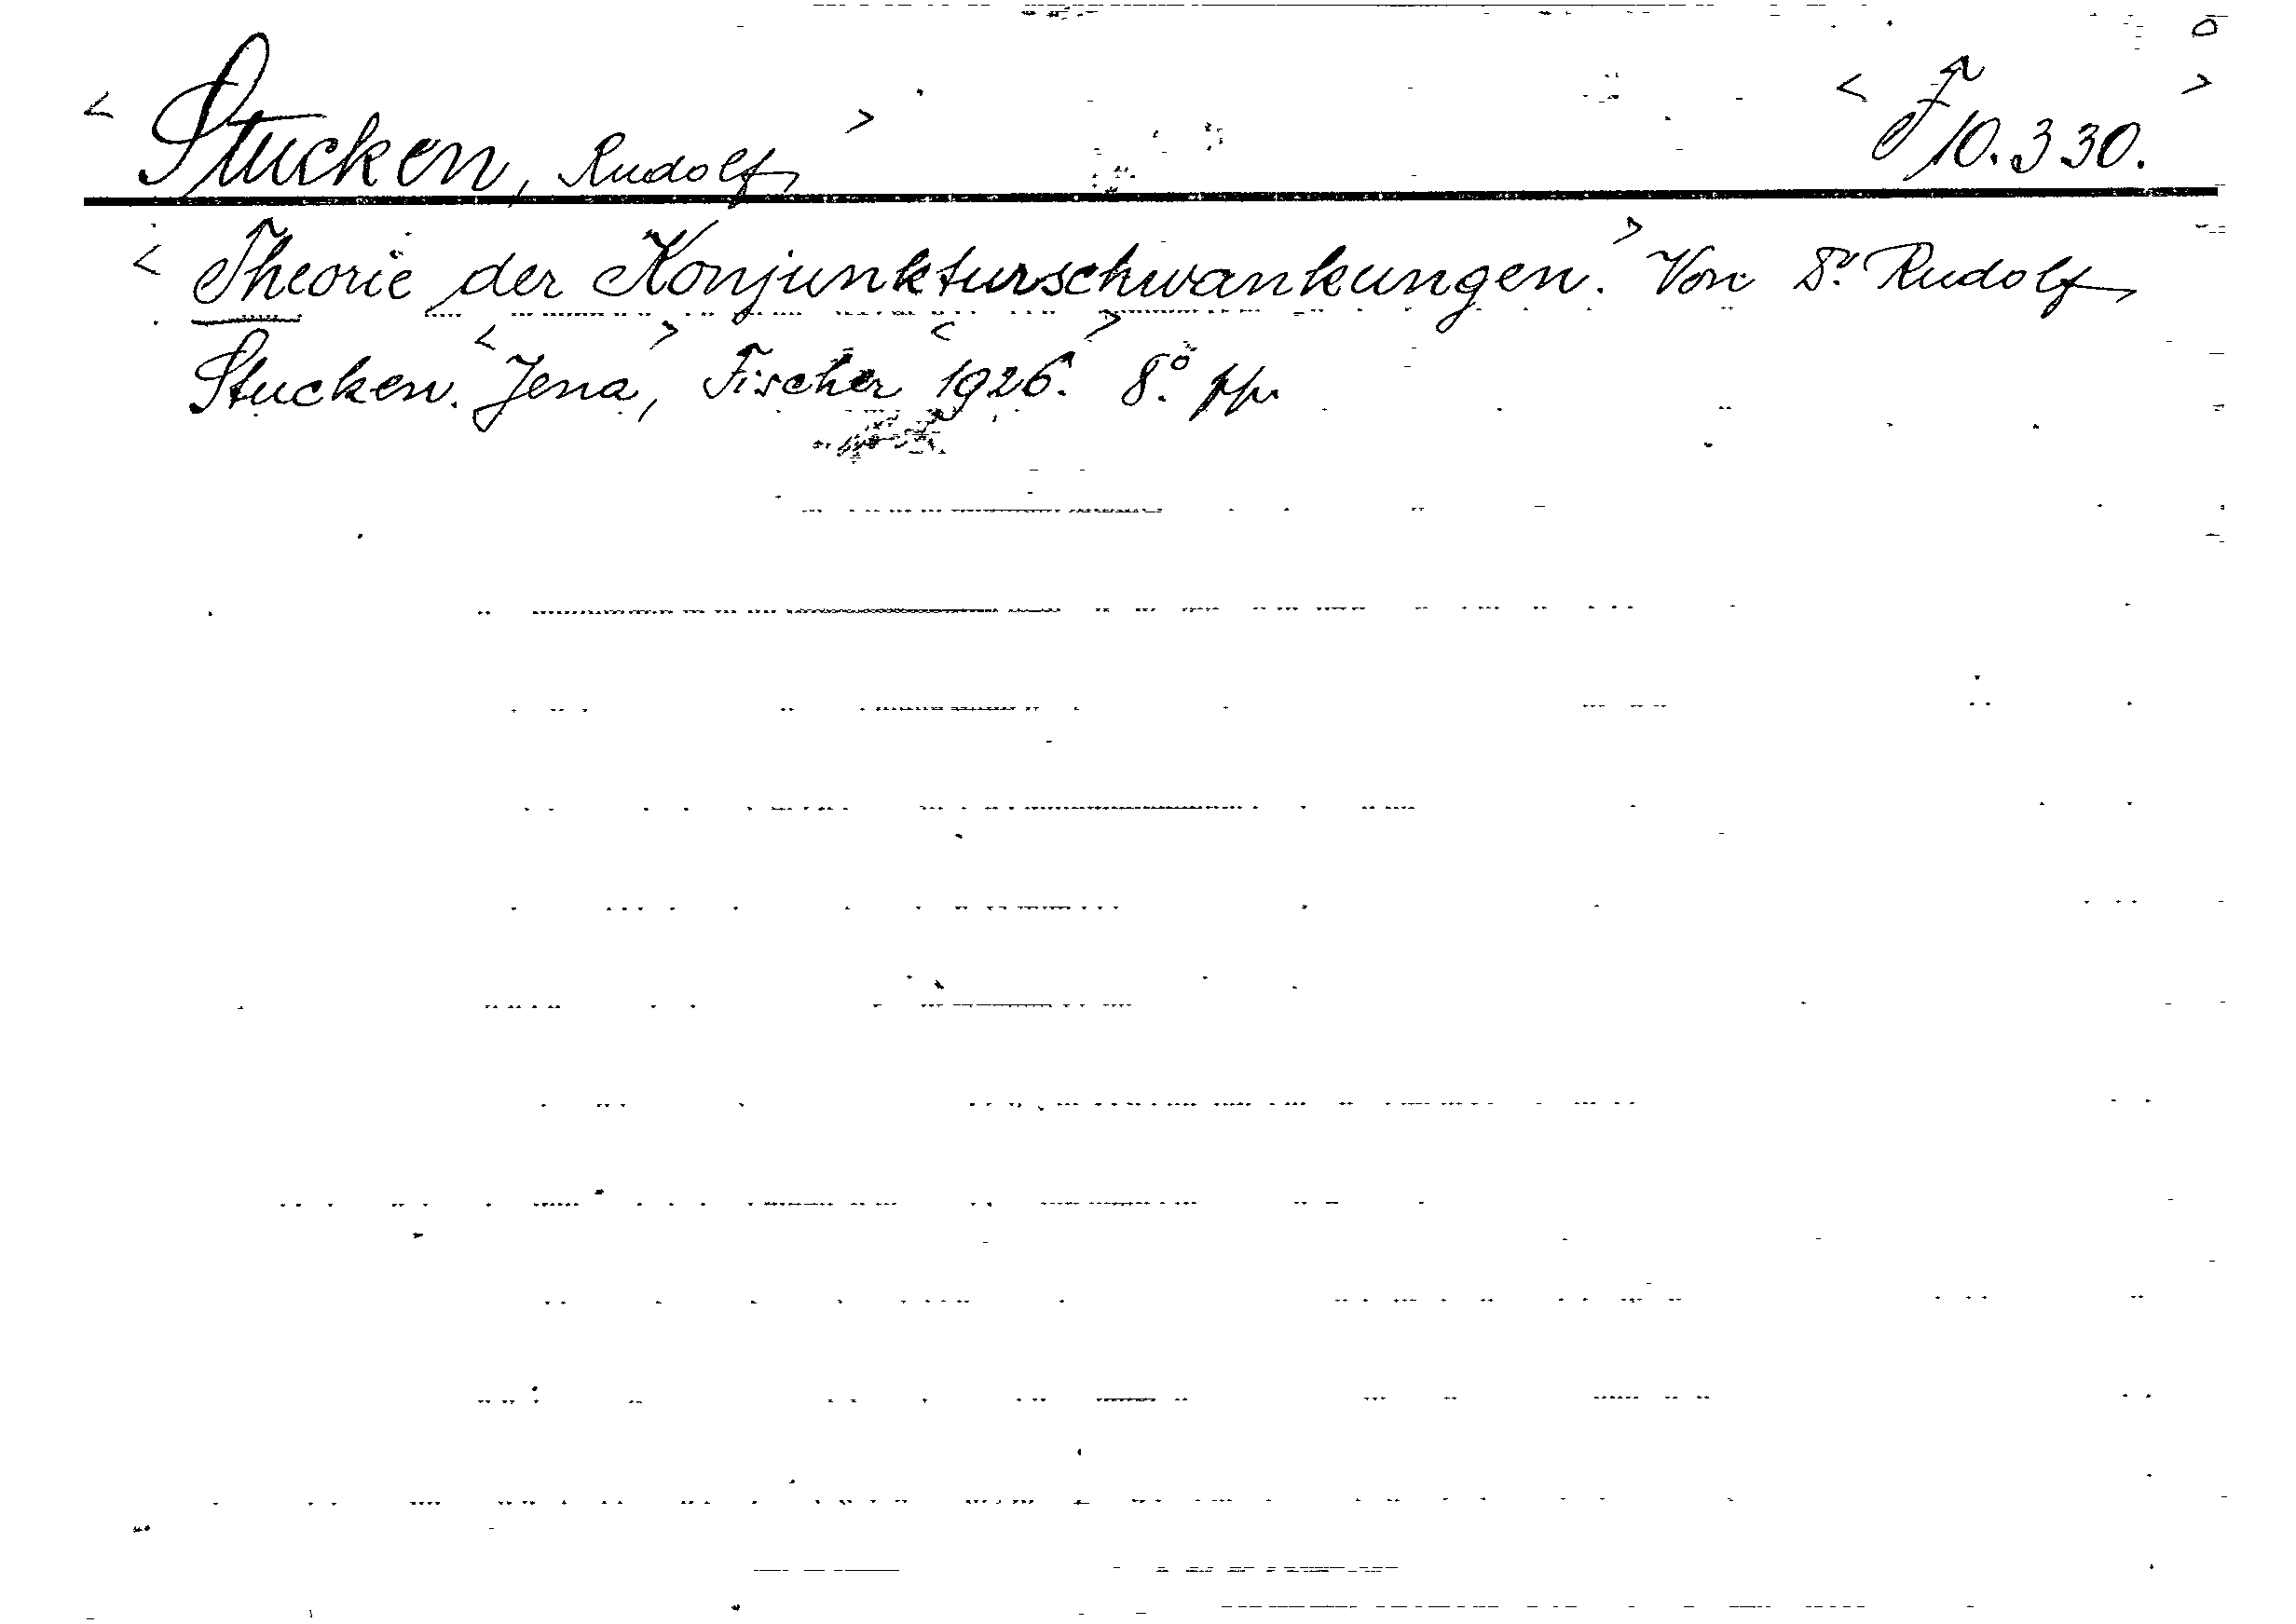 < Stucken, Rudolf > < F 10.330. >
< Theorie der Konjunkturschwankungen. > Von Dr. Rudolf
Stucken. < Jena, > Fischer < 1926. > 8°. pp.